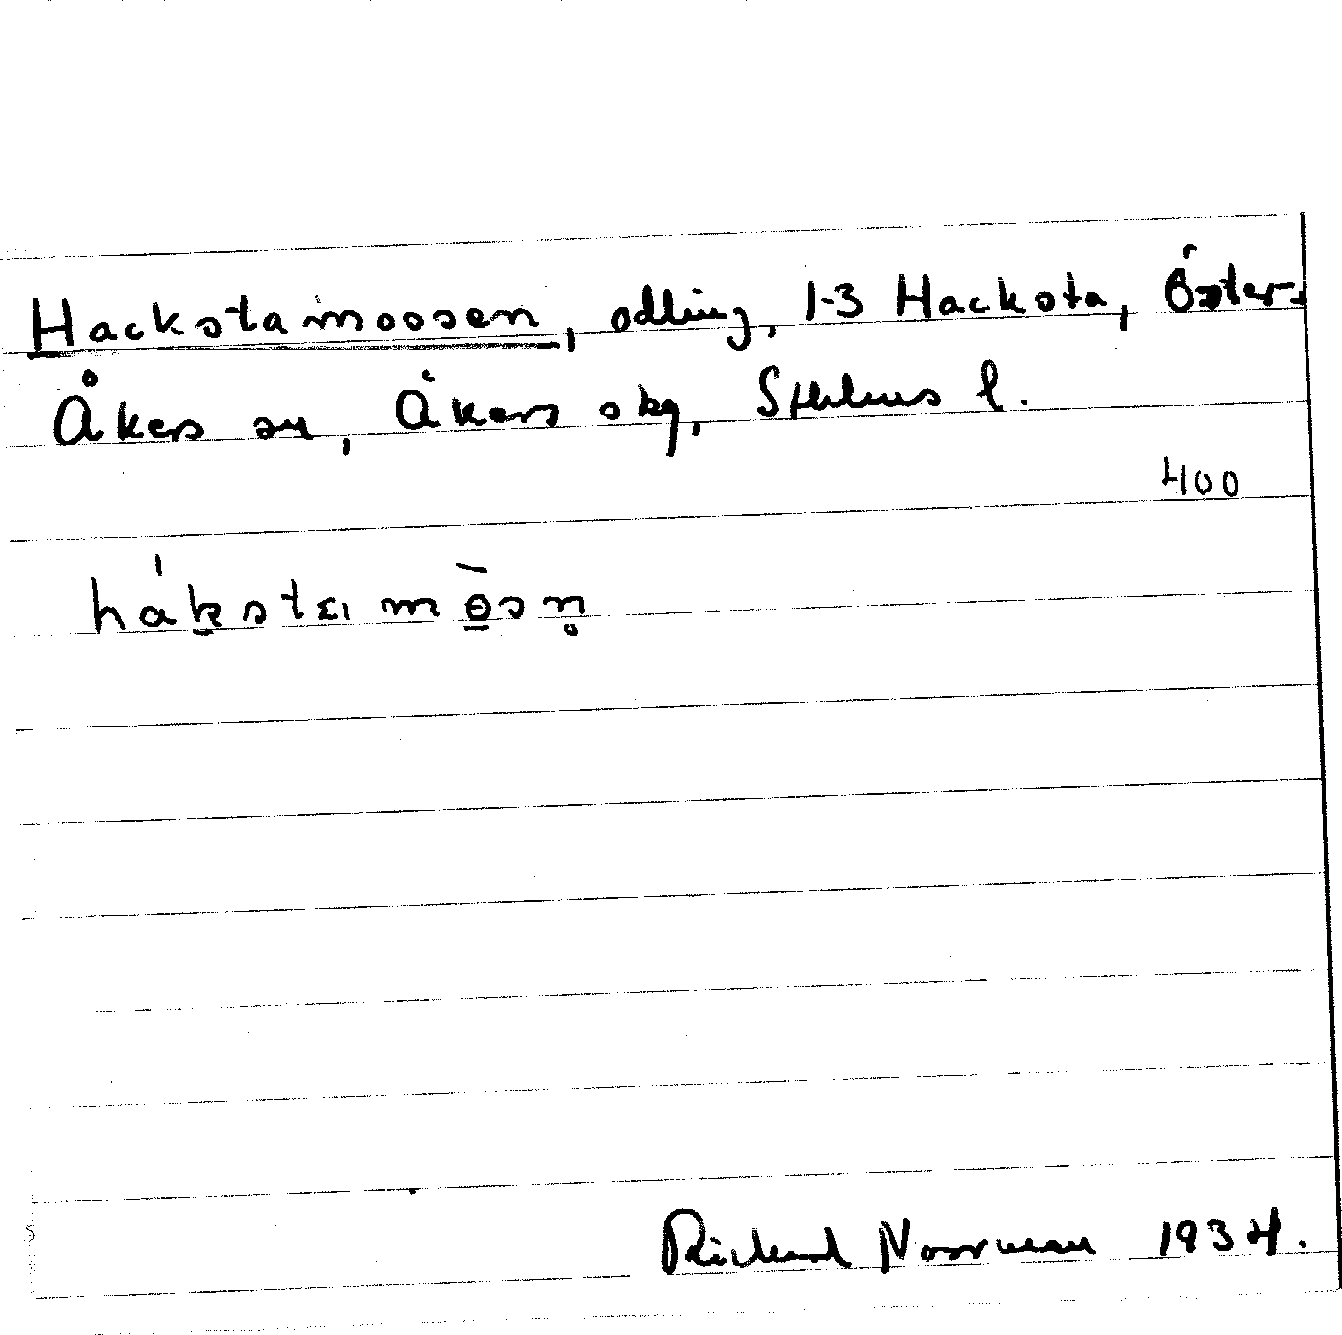 Hackstamossen, odling, 1-3 Hacksta, Öster-
Åkers sn, Åkers skg, Sthlms l.
400
Richard Norrman 1934.